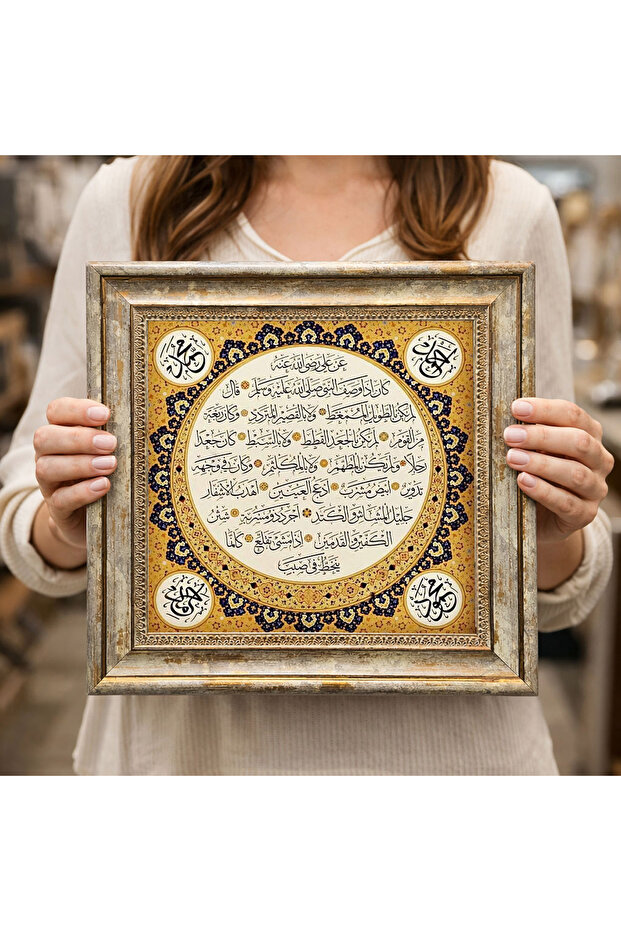 محمد
عن علي رضي الله عنه
كان اذا وصف النبي صلى الله عليه وسلم قال
لم يكن بالطويل الممغط ولا بالقصير المتردد وكان ربعة
من القوم لم يكن بالجعد القطط ولا بالسبط كان جعدا
رجلا ولم يكن بالمطهم ولا بالمكلثم وكان في وجهه
تدوير ابيض مشرب ادعج العينين اهدب الاشفار
جليل المشاش والكتد اجرد ذو مسربة شثن
الكفين والقدمين اذا مشى تقلع كانما
ينحط في صبب
محمود